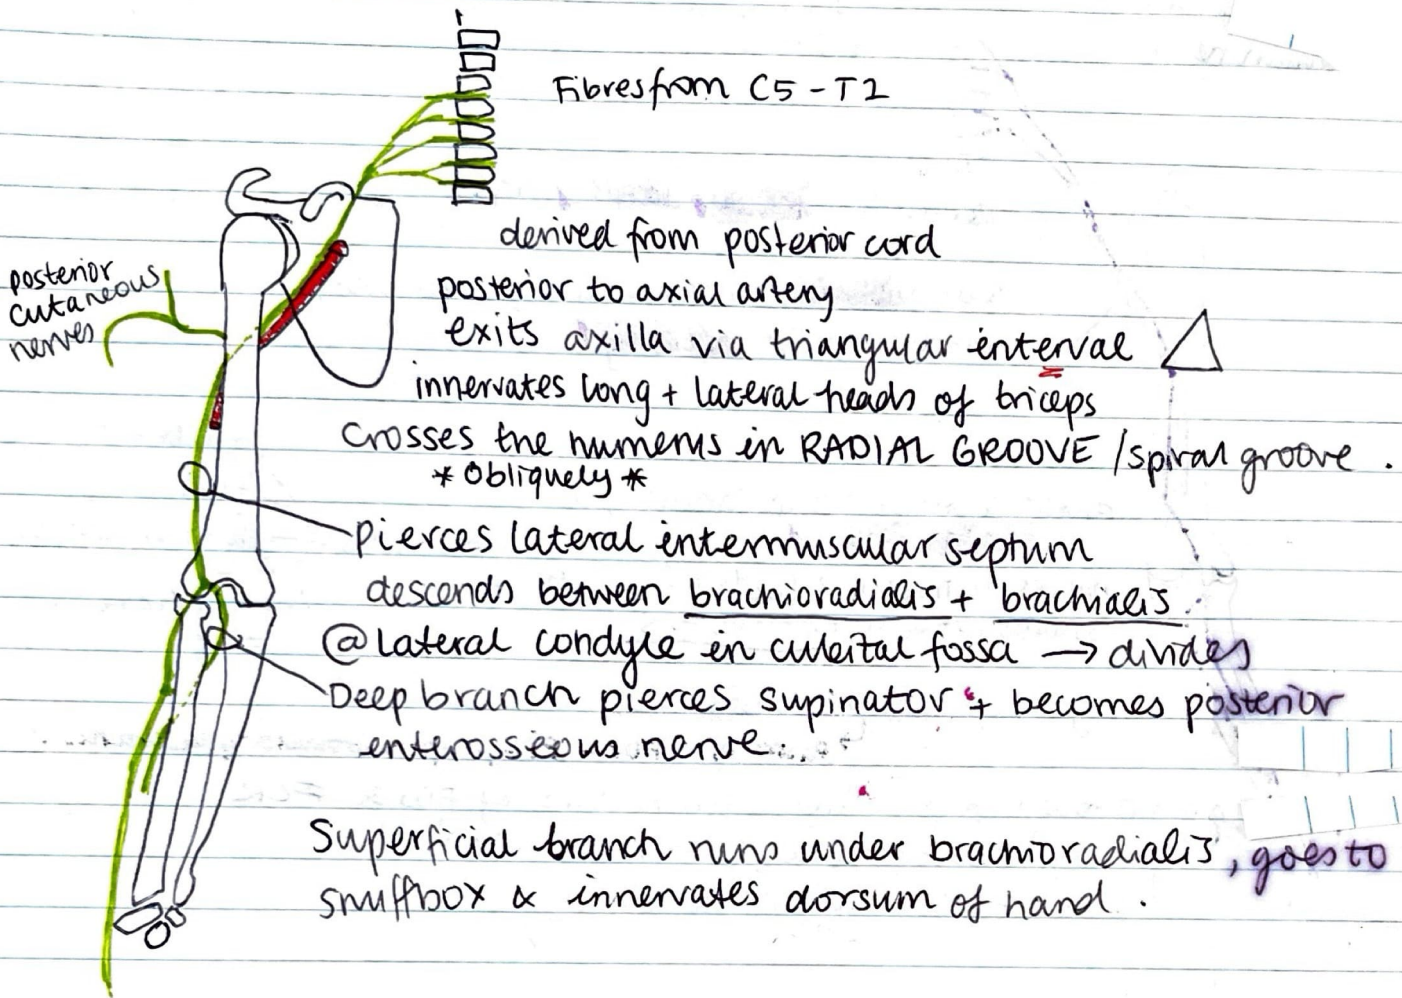 Fibres from C5 - T1
derived from posterior cord
posterior to axial artery
exits axilla via triangular interval
innervates long + lateral heads of triceps
crosses the humerus in RADIAL GROOVE / spiral groove .
* obliquely *
posterior
cutaneous
nerves
Pierces lateral intermuscular septum
descends between brachioradialis + brachialis.
@ lateral condyle in cubital fossa → divides
Deep branch pierces supinator + becomes posterior
interosseous nerve...
Superficial branch runs under brachioradialis, goes to
snuffbox & innervates dorsum of hand .